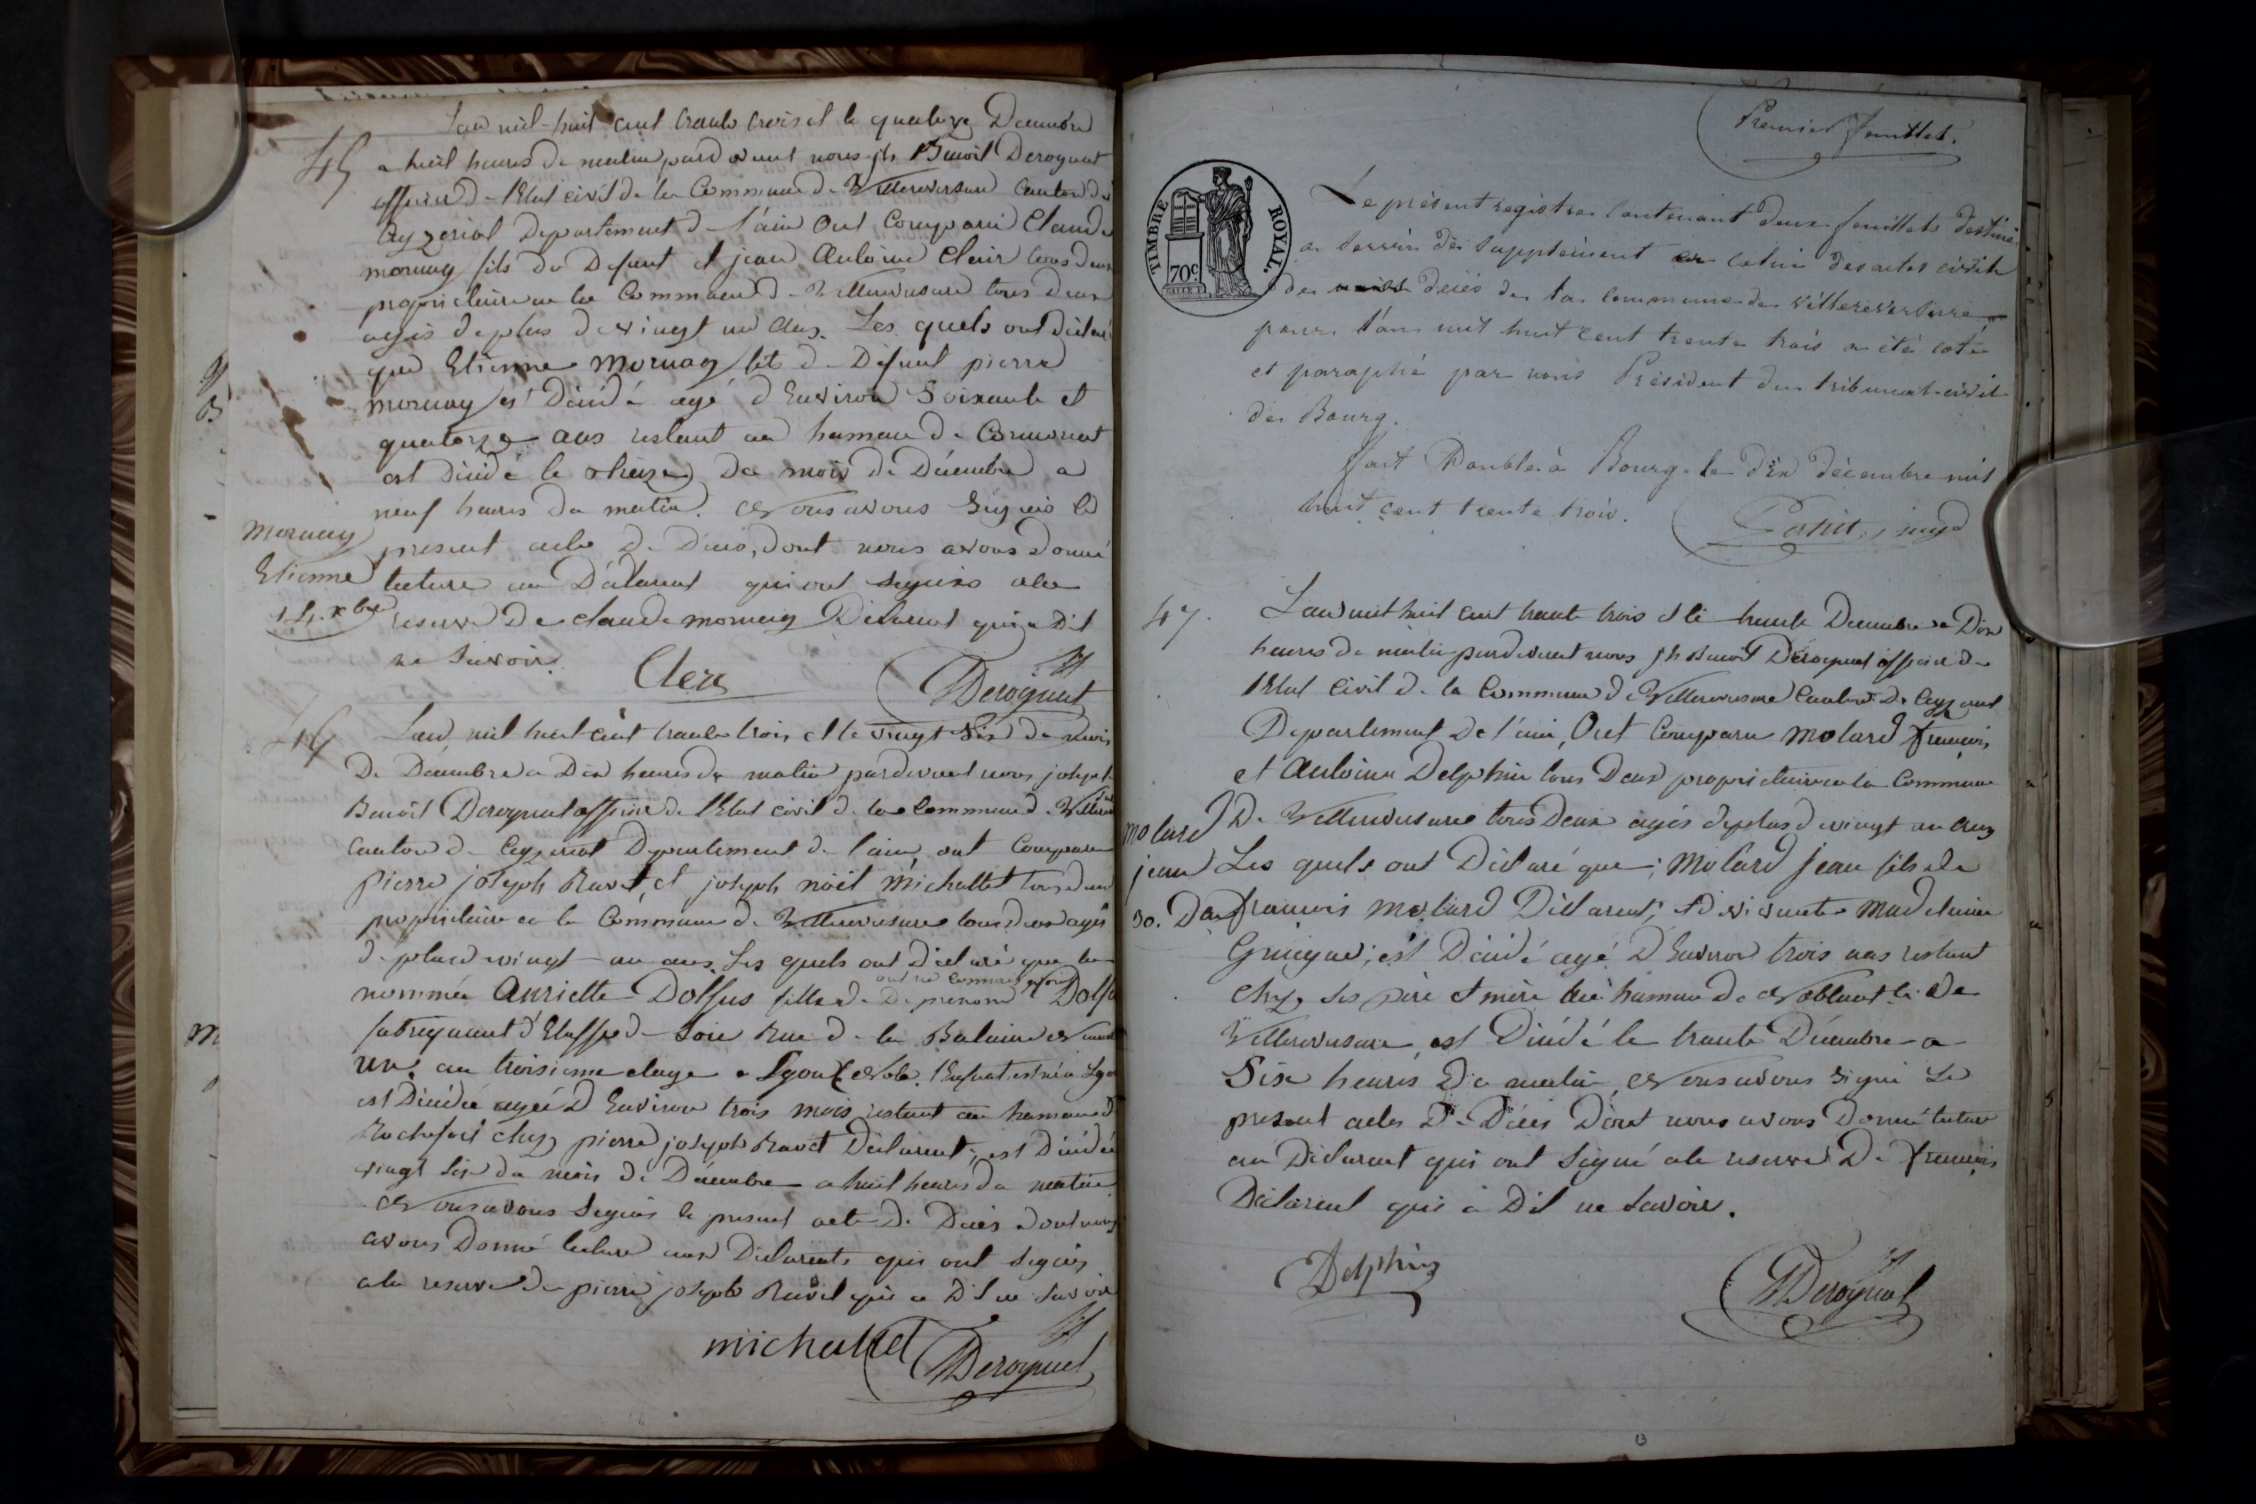 45
L'an mil-huit cent trante trois et le quatorze Décembre
a huit heures du matin pardevant nous jh Benoit Derognat
officier de l'Etat civil de la Commune de Villereversure Canton de
Ceyzeriat Departement de l'ain Ont Comparu Claude
mornay fils du Defunt et jean Antoine Clair tous deux
propriétaire en la Commune de Villereversure tous deux
agés de plus de vingt un ans. Les quels ont déclaré
que Etienne Mornay fils de Défunt pierre
mornay est Décidé agé d'Environ Soixante et
quatorze ans restant au hameau de Cormorat
est Décidé le treize du mois de Décembre a
neuf heures du matin. et Nous avons Signés le
Mornay
Etienne
14. xbre
present acte De Decès, dont nous avons donné
lecture au Déclarant qui ont signés a la
reserve De claude mornay Déclarant qui a Dit
ne Savoir.
Clerc
Derognat
46
L'an, mil huit cent trante trois et le vingt Six du mois
De Decembre a Dix heures du matin pardevant nous joseph
Benoit Derognat officier de l'Etat civil de la Commune de
Canton de Ceyzeriat Departement de l'ain ont Comparu
pierre joseph Ravet et joseph noël Michallet tous deux
propriétaire en la Commune de Villereversure tous deux agés
de plus de vingt un ans. Les quels ont Déclaré que la
nommée Anriette Dolfus fille de De prenom
fabriquant d'Etoffe de Soie Rue de la Balaine
un, au troisieme etage a Lyon Nota. l'Enfant est née a
est Décidée agée D'Environ trois mois restant au hameau de
Rochefort chez pierre joseph Ravet Déclarant, est Décidée
vingt Six du mois de Décembre a huit heures du matin
et Nous avons Signés le present acte de Decès dont nous
avons Donné lecture aux Déclarants qui ont Signés
a la reserve de pierre joseph Ravet qui a Dit ne Savoir
michallet
Derognat
Premier feuillet.
TIMBRE ROYAL.
70c
Le présent registre contenant deux feuillets destiné
a servir de supplément a celui des actes civils
de décés de la commune de villereversure
pour l'an mil huit cent trente trois a été coté
et paraphé par nous Président du tribunal civil
de Bourg.
fait Double à Bourg le dix décembre mil
huit cent trente trois.
47.
L'an mil huit cent trante trois et le trante Decembre a Dix
heures du matin pardevant nous jh Benoit Derognat officier de
l'Etat Civil de la Commune de Villereversure Canton De Ceyzeriat
Departement De l'ain, Ont Comparu Molard françois
et Antoine Delphin tous Deux propriétaire en la Commune
De Villereversure tous Deux agés de plus de vingt un ans
molard
jean
30. Dbre
Les quels ont Déclaré que; Molard jean fils de
françois Molard Déclarant; et de vivante Madelaine
est Décidé agé D'Environ trois ans restant
chez ses père et mère au hameau de Noblant de
Villereversure, est Décidé le trante Décembre a
Six heures Du matin et Nous avons signé Le
present actes De Décès Dont nous avons Donné lecture
au Déclarant qui ont Signé a la reserve De françois
Déclarant qui a Dit ne Savoir.
Delphin
Derognat